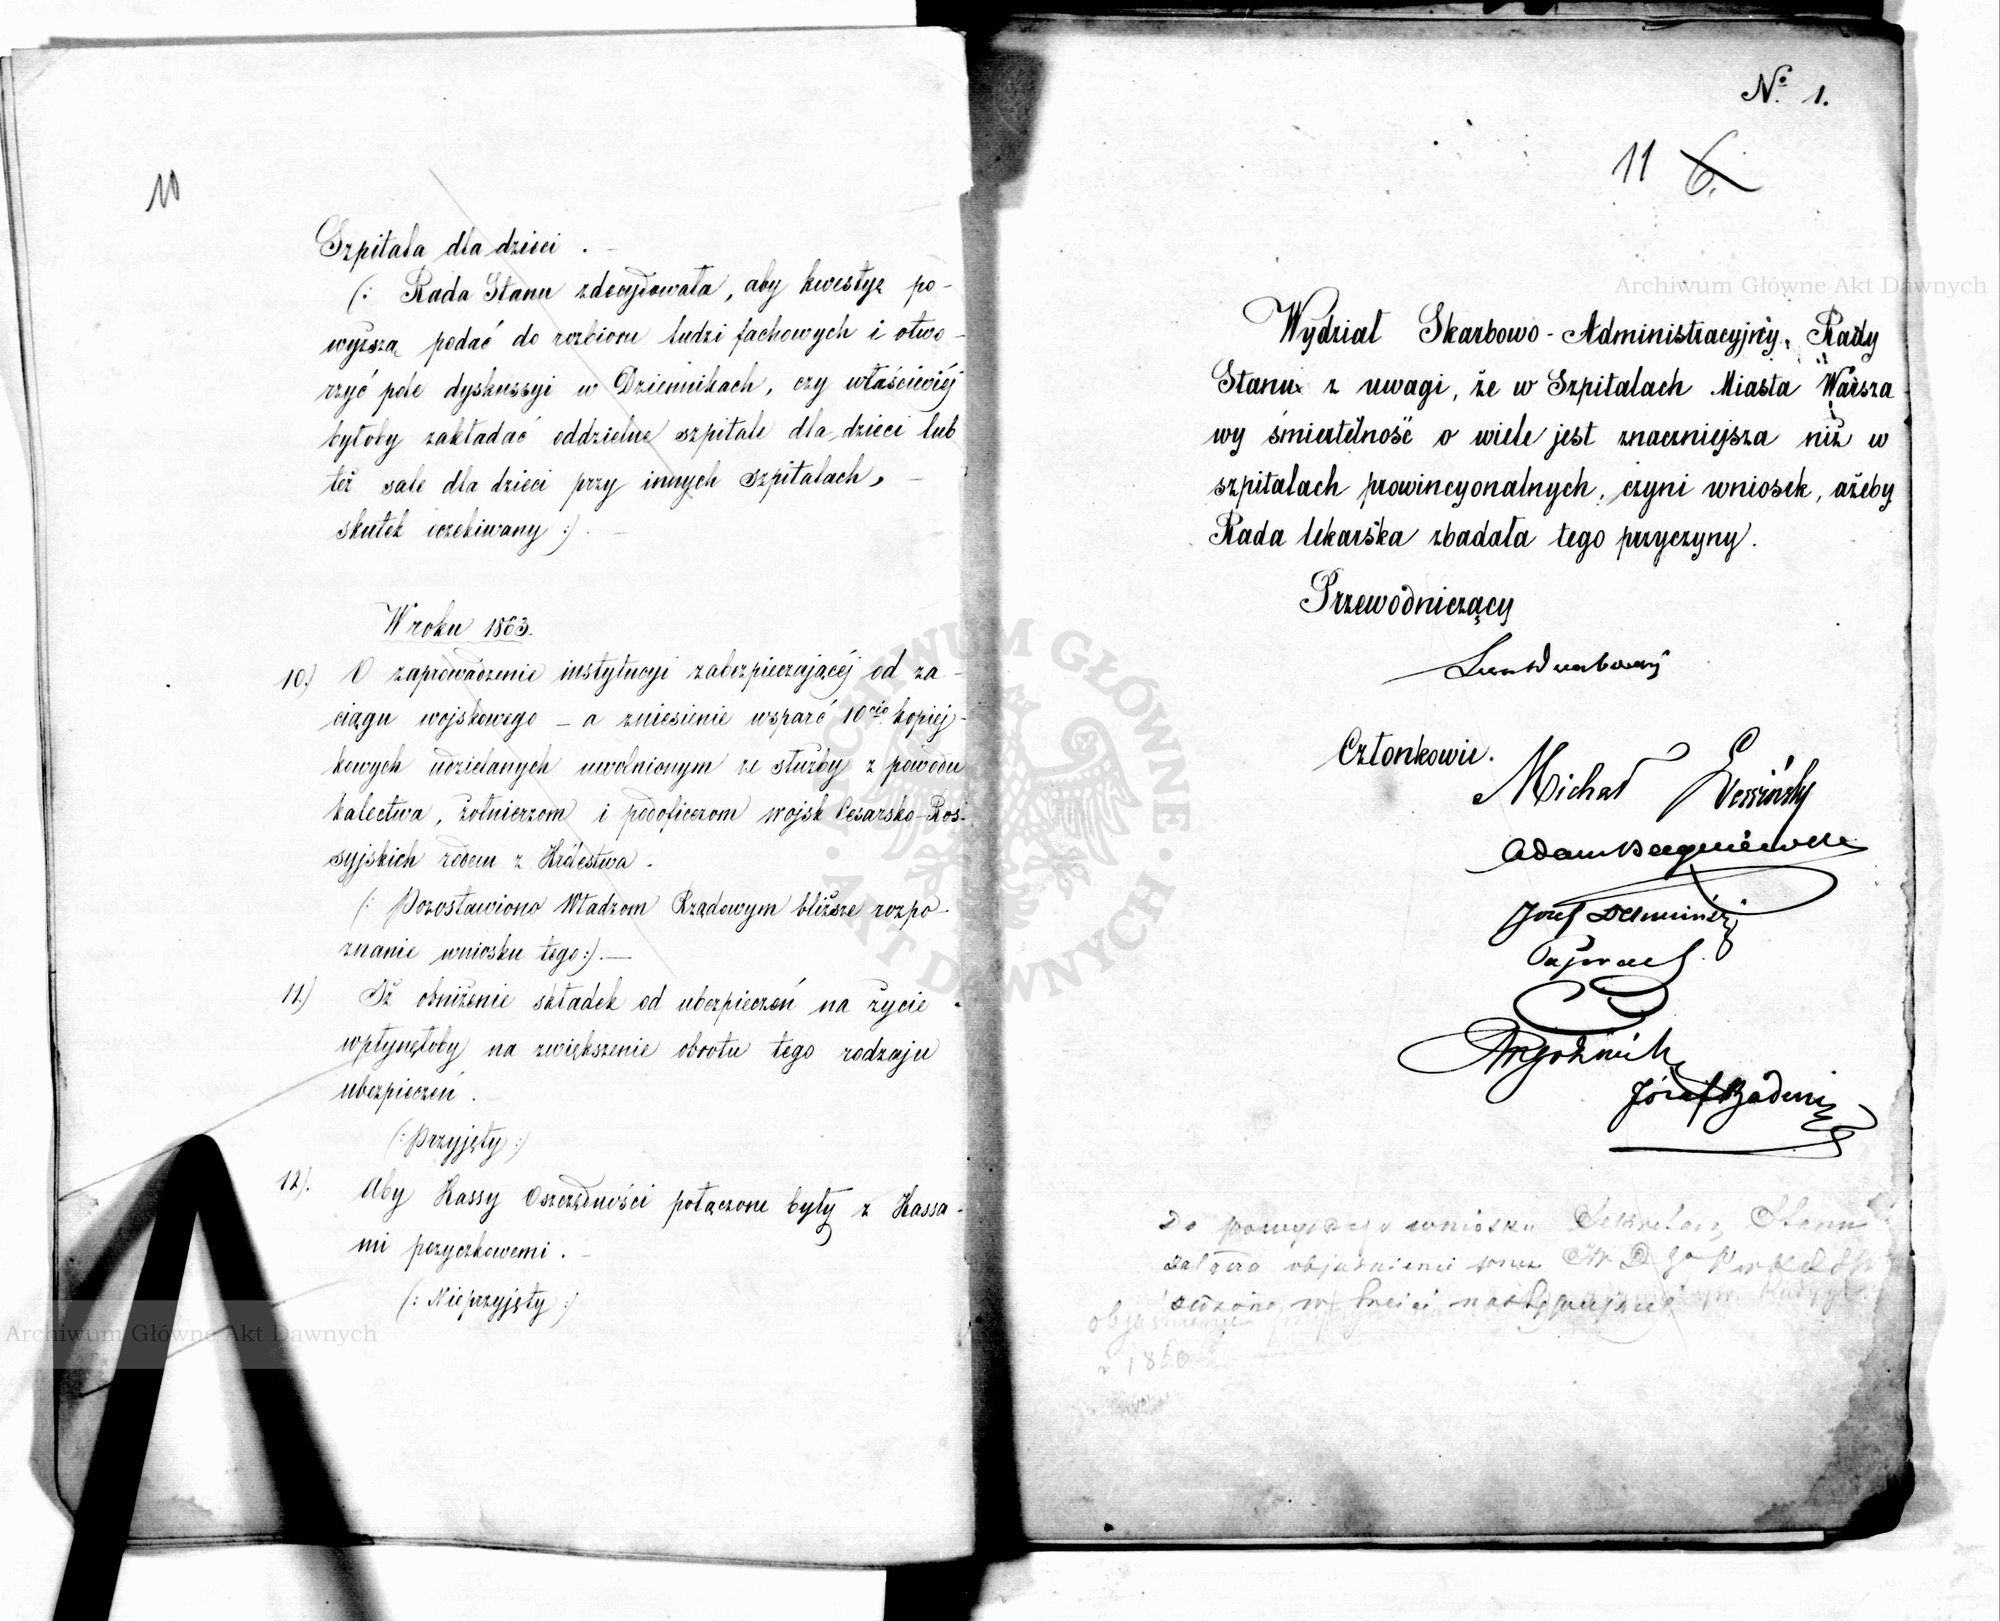 10
Szpitala dla dzieci . —
(: Rada Stanu zdecydowała, aby kwestyę po-
wyższą podać do rozbioru ludzi fachowych i otwo-
rzyć pole dyskussyi w Dziennikach, czy właściwiéj
byłoby zakładać oddzielne szpitale dla dzieci lub
też sale dla dzieci przy innych szpitalach, —
skutek oczekiwany :) . —
W roku 1863.
10.) O zaprowadzenie instytucyi zabezpieczającéj od za-
ciągu wojskowego — a zniesienie wsparć 10cio kopiej-
kowych udzielanych uwolnionym ze służby z powodu
kalectwa, żołnierzom i podoficerom wojsk Cesarsko-Ros-
syjskich rodem z Królestwa.
(: Pozostawiono Władzom Rządowym bliższe rozpo-
znanie wniosku tego :) . —
11.) Iż obniżenie składek od ubezpieczeń na życie
wpłynęłoby na zwiększenie obrotu tego rodzaju
ubezpieczeń . —
(: Przyjęty :)
12). Aby Kassy Oszczędności połączone były z Kassa-
mi pożyczkowemi . —
(: Nieprzyjęty :)
No. 1.
11 6.
Wydział Skarbowo-Administracyjny Rady
Stanu z uwagi, że w Szpitalach Miasta Warsza
wy śmiertelność o wiele jest znaczniejsza niż w
szpitalach prowincyonalnych, czyni wniosek, ażeby
Rada lekarska zbadała tego przyczyny.
Przewodniczący
Członkowie.
Michał
Adam
Józef
Józef Badeni
Do powyższego wniosku Sekretarz Stanu
objaśnienie
w treści następującej
objaśnienie
Archiwum Główne Akt Dawnych
Archiwum Główne Akt Dawnych
ARCHIWUM GŁÓWNE · AKT DAWNYCH ·